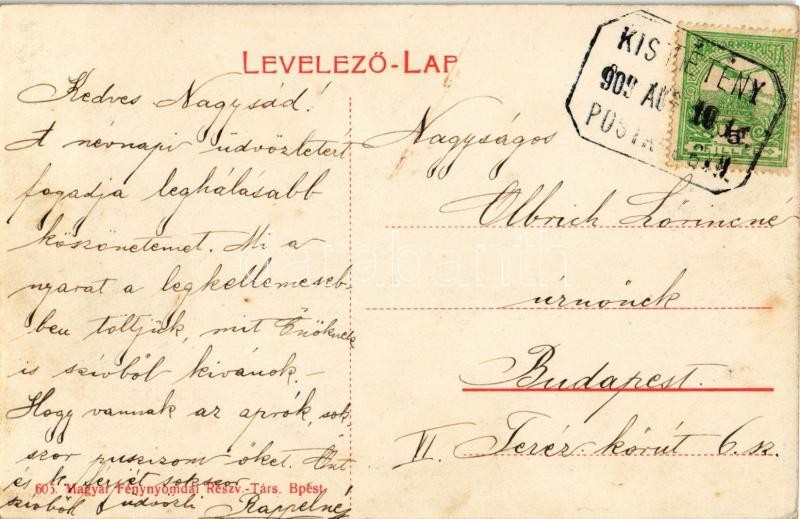 LEVELEZŐ-LAP
Kedves Nagysád!
A névnapi üdvözletért
fogadja leghálásabb
köszönetemet. Mi a
nyarat a legkellemeseb-
ben töltjük, mit Önöknek
is szívből kívánok. –
Hogy vannak az aprók, sok-
szor puszizom őket. Önt
és k. férjét sokszor
szívből üdvözli Rappelné
605. Magyar Fénynyomdai Részv.-Társ. Bpest.
KISTÉTÉNY
909 AUG 10
POSTA
MAGYAR KIR. POSTA
5
FILLÉR
Nagyságos
Olbrich Lőrincné
úrnőnek
Budapest.
VI. Teréz-körút 6. sz.
darabanth